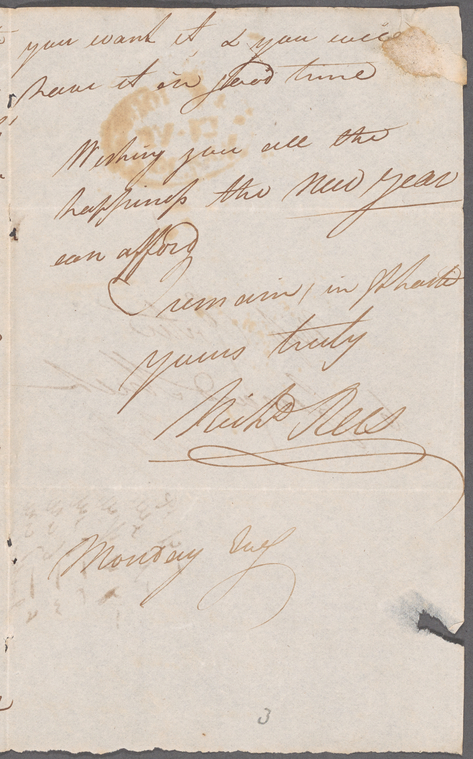 you want it, & you will
have it in good time
Wishing you all the
happiness the new year
can afford
I remain, in haste
yours truly
Richd Rees
Monday Evg
3